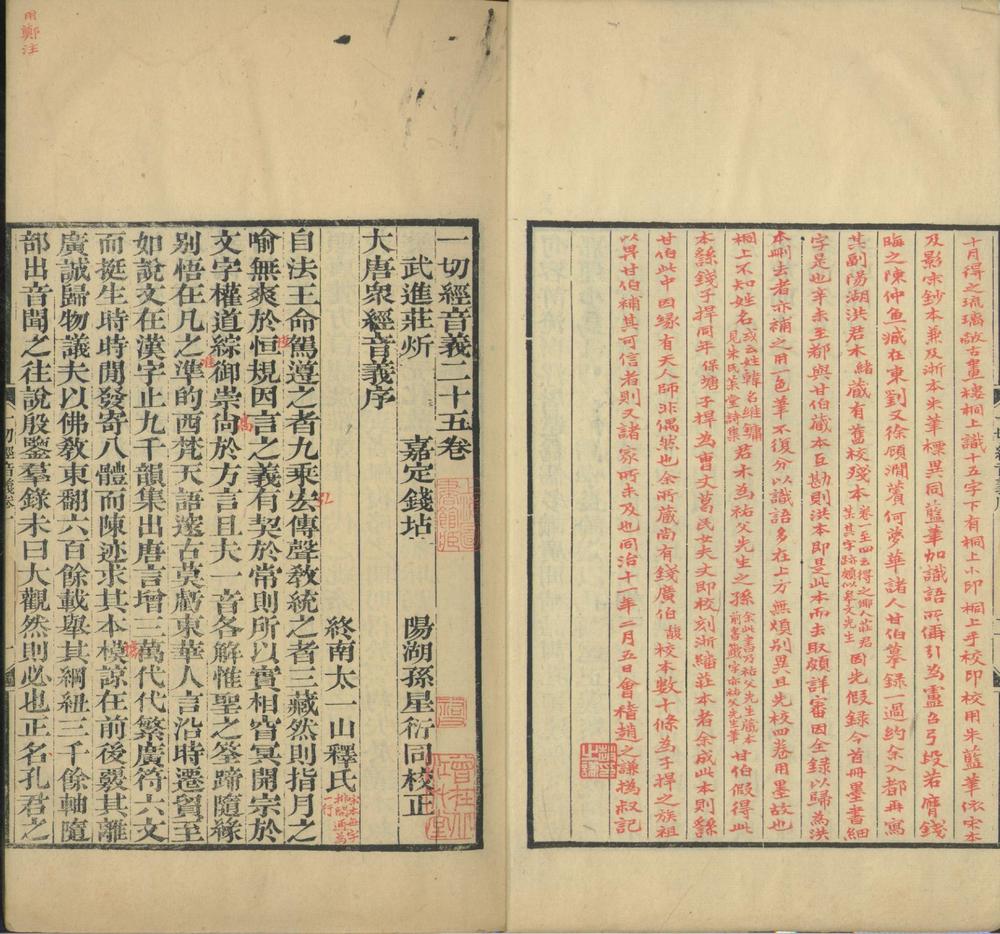 十月得之琉璃敞古畫樓桐上識十五字下有桐上小印桐上手校印校用朱藍筆依宋本
及影宋鈔本兼及浙本朱筆標異同藍筆加識語所偁引為盧召弓段若膺錢
晦之陳仲魚臧在東劉又徐顧澗薲何夢華諸人甘伯摹錄一過約余入都再寫
其副陽湖洪君木緒藏有舊校殘本卷一至四云得之鄉人莊君某其字跡頗似皋文先生因先假錄今首冊墨書細
字是也辛未至都與甘伯藏本互勘則洪本即是此本而去取頗詳審因全錄以歸為洪
本刪去者亦補之用一色筆不復分以識語多在上方無煩別異且先校四卷用墨故也
桐上不知姓名或云姓韓名維鏞見朱氏茮堂詩集君木為祐父先生之孫余此書乃祐父先生藏本前書籤字亦祐父先生筆甘伯假得此
本諉錢子捍同年保塘子捍為曹丈葛民女夫丈即校刻浙繙莊本者余成此本則諉
甘伯此中因緣有天人師非偶然也余所藏尚有錢廣伯馥校本數十條為子捍之族祖
以畀甘伯補其可信者則又諸家所未及也同治十一年二月五日會稽趙之謙撝叔記
用鄭注
一切經音義二十五卷
武進莊炘 嘉定錢坫 陽湖孫星衍同校正
大唐衆經音義序
終南太一山釋氏
宋本無字排闊通為一行
自法王命駕遵之者九乘玄傳聲教統之者三藏然則指月之
喻無爽於恒規因言之義有契於常則所以實相皆冥開宗於
文字權道綜御崇尙於方言且夫一音各解惟聖之筌蹄隨緣
别悟在凡之準的西梵天語邃古莫虧東華人言沿時遷貿至
如說文在漢字止九千韻集出唐言增三萬代代繁廣符六文
而挺生時時閒發寄八體而陳迹求其本模諒在前後覈其離
廣誠歸物議夫以佛敎東翻六百餘載舉其綱紐三千餘軸隨
部出音聞之往說殷鑒羣錄未曰大觀然則必也正名孔君之
一切經音義卷一